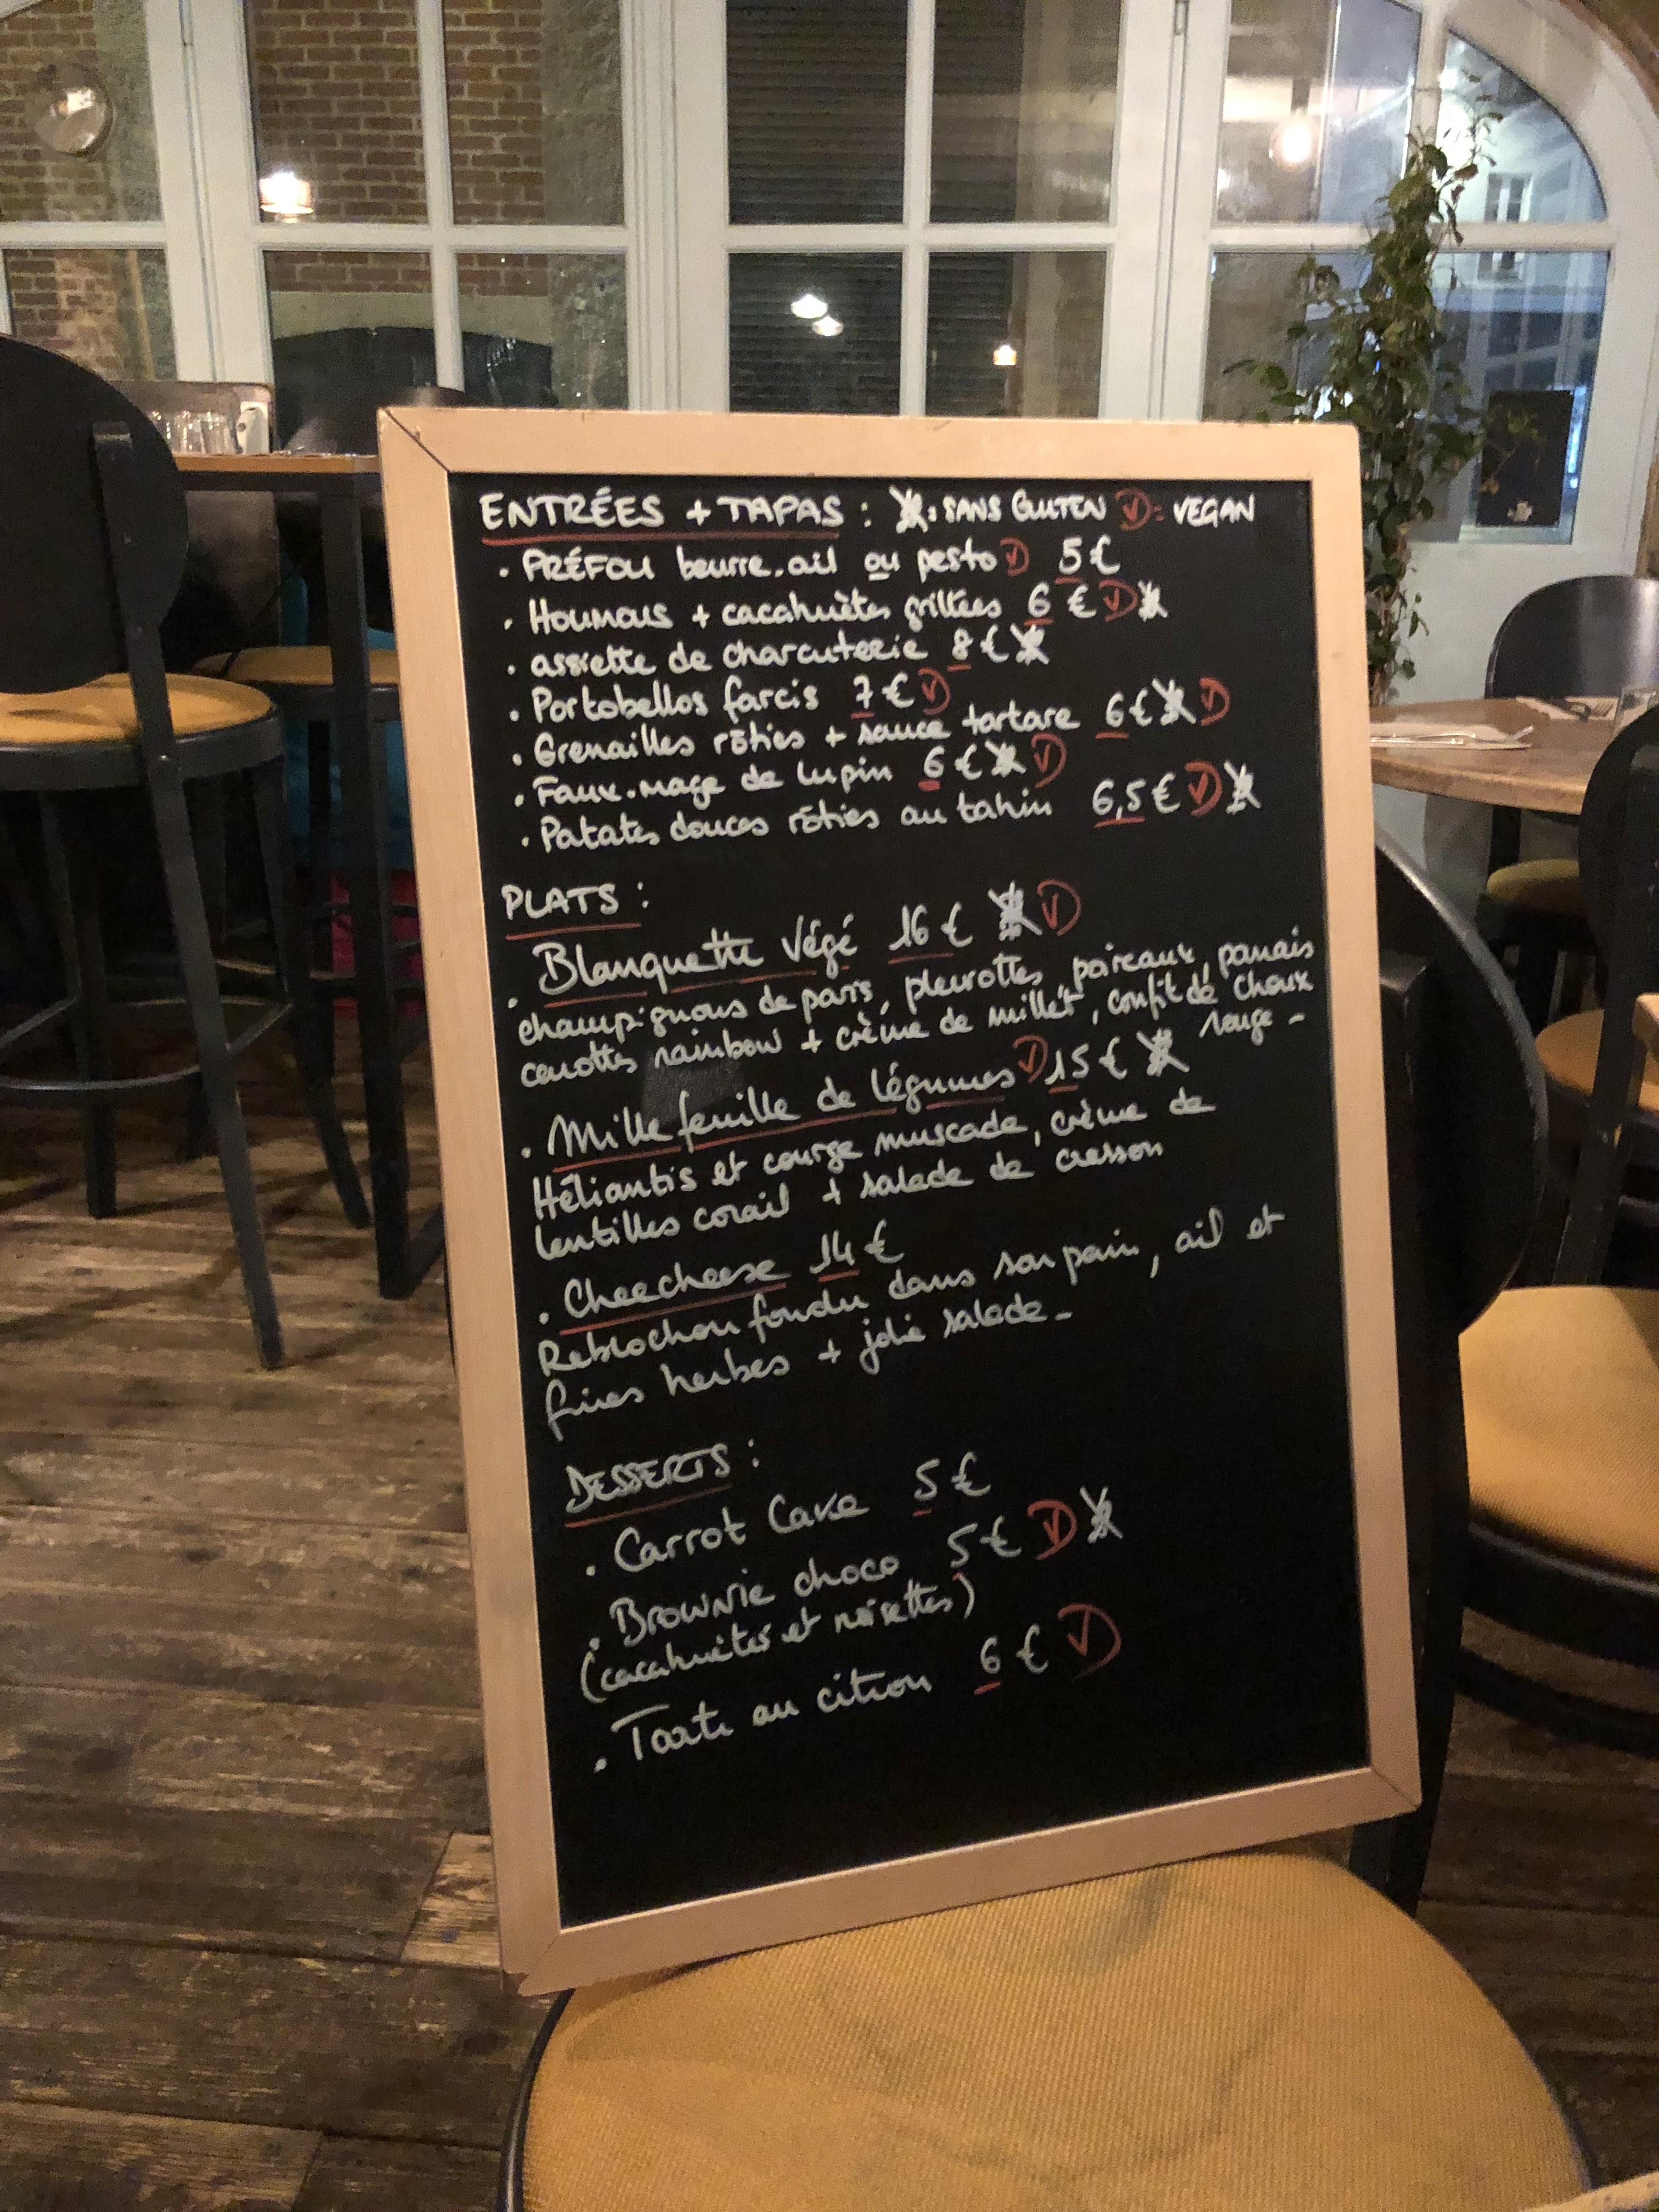 ENTRÉES + TAPAS : : SANS GLUTEN V : VEGAN
. PRÉFOU beurre.ail ou pesto V 5€
. Houmous + cacahuètes grillées 6 € V
. assiette de charcuterie 8 €
. Portobellos farcis 7 € V
. Grenailles rôties + sauce tartare 6€ V
. Faux.mage de lupin 6 € V
. Patates douces rôties au tahin 6,5 € V
PLATS :
. Blanquette Végé 16 € V
champignons de paris, pleurottes, poireaux, panais
carottes rainbow + crème de millet, confit de choux
rouge -
. Mille feuille de légumes V 15 €
Héliantis et courge muscade, crème de
lentilles corail + salade de cresson
. Cheecheese 14 €
Reblochon fondu dans son pain, ail et
fines herbes + jolie salade -
DESSERTS :
. Carrot Cake 5 €
. Brownie choco 5 € V
(cacahuètes et noisettes)
. Tarte au citron 6 € V